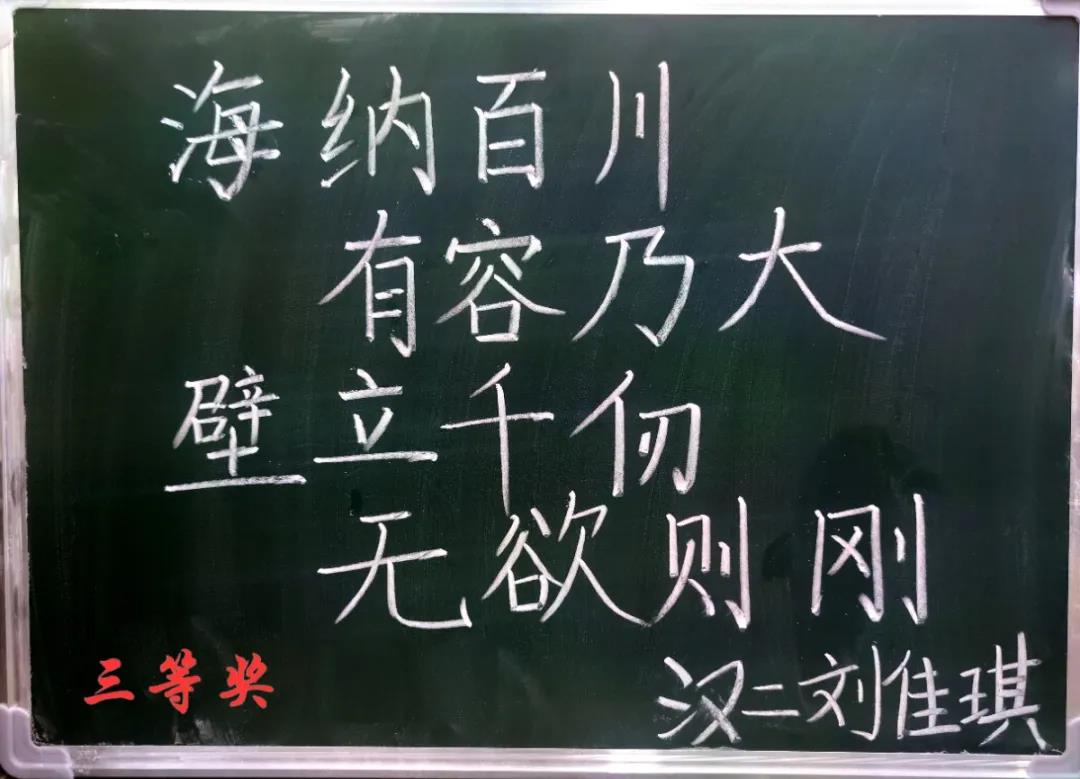 海纳百川
有容乃大
壁立千仞
无欲则刚
三等奖
汉二刘佳琪